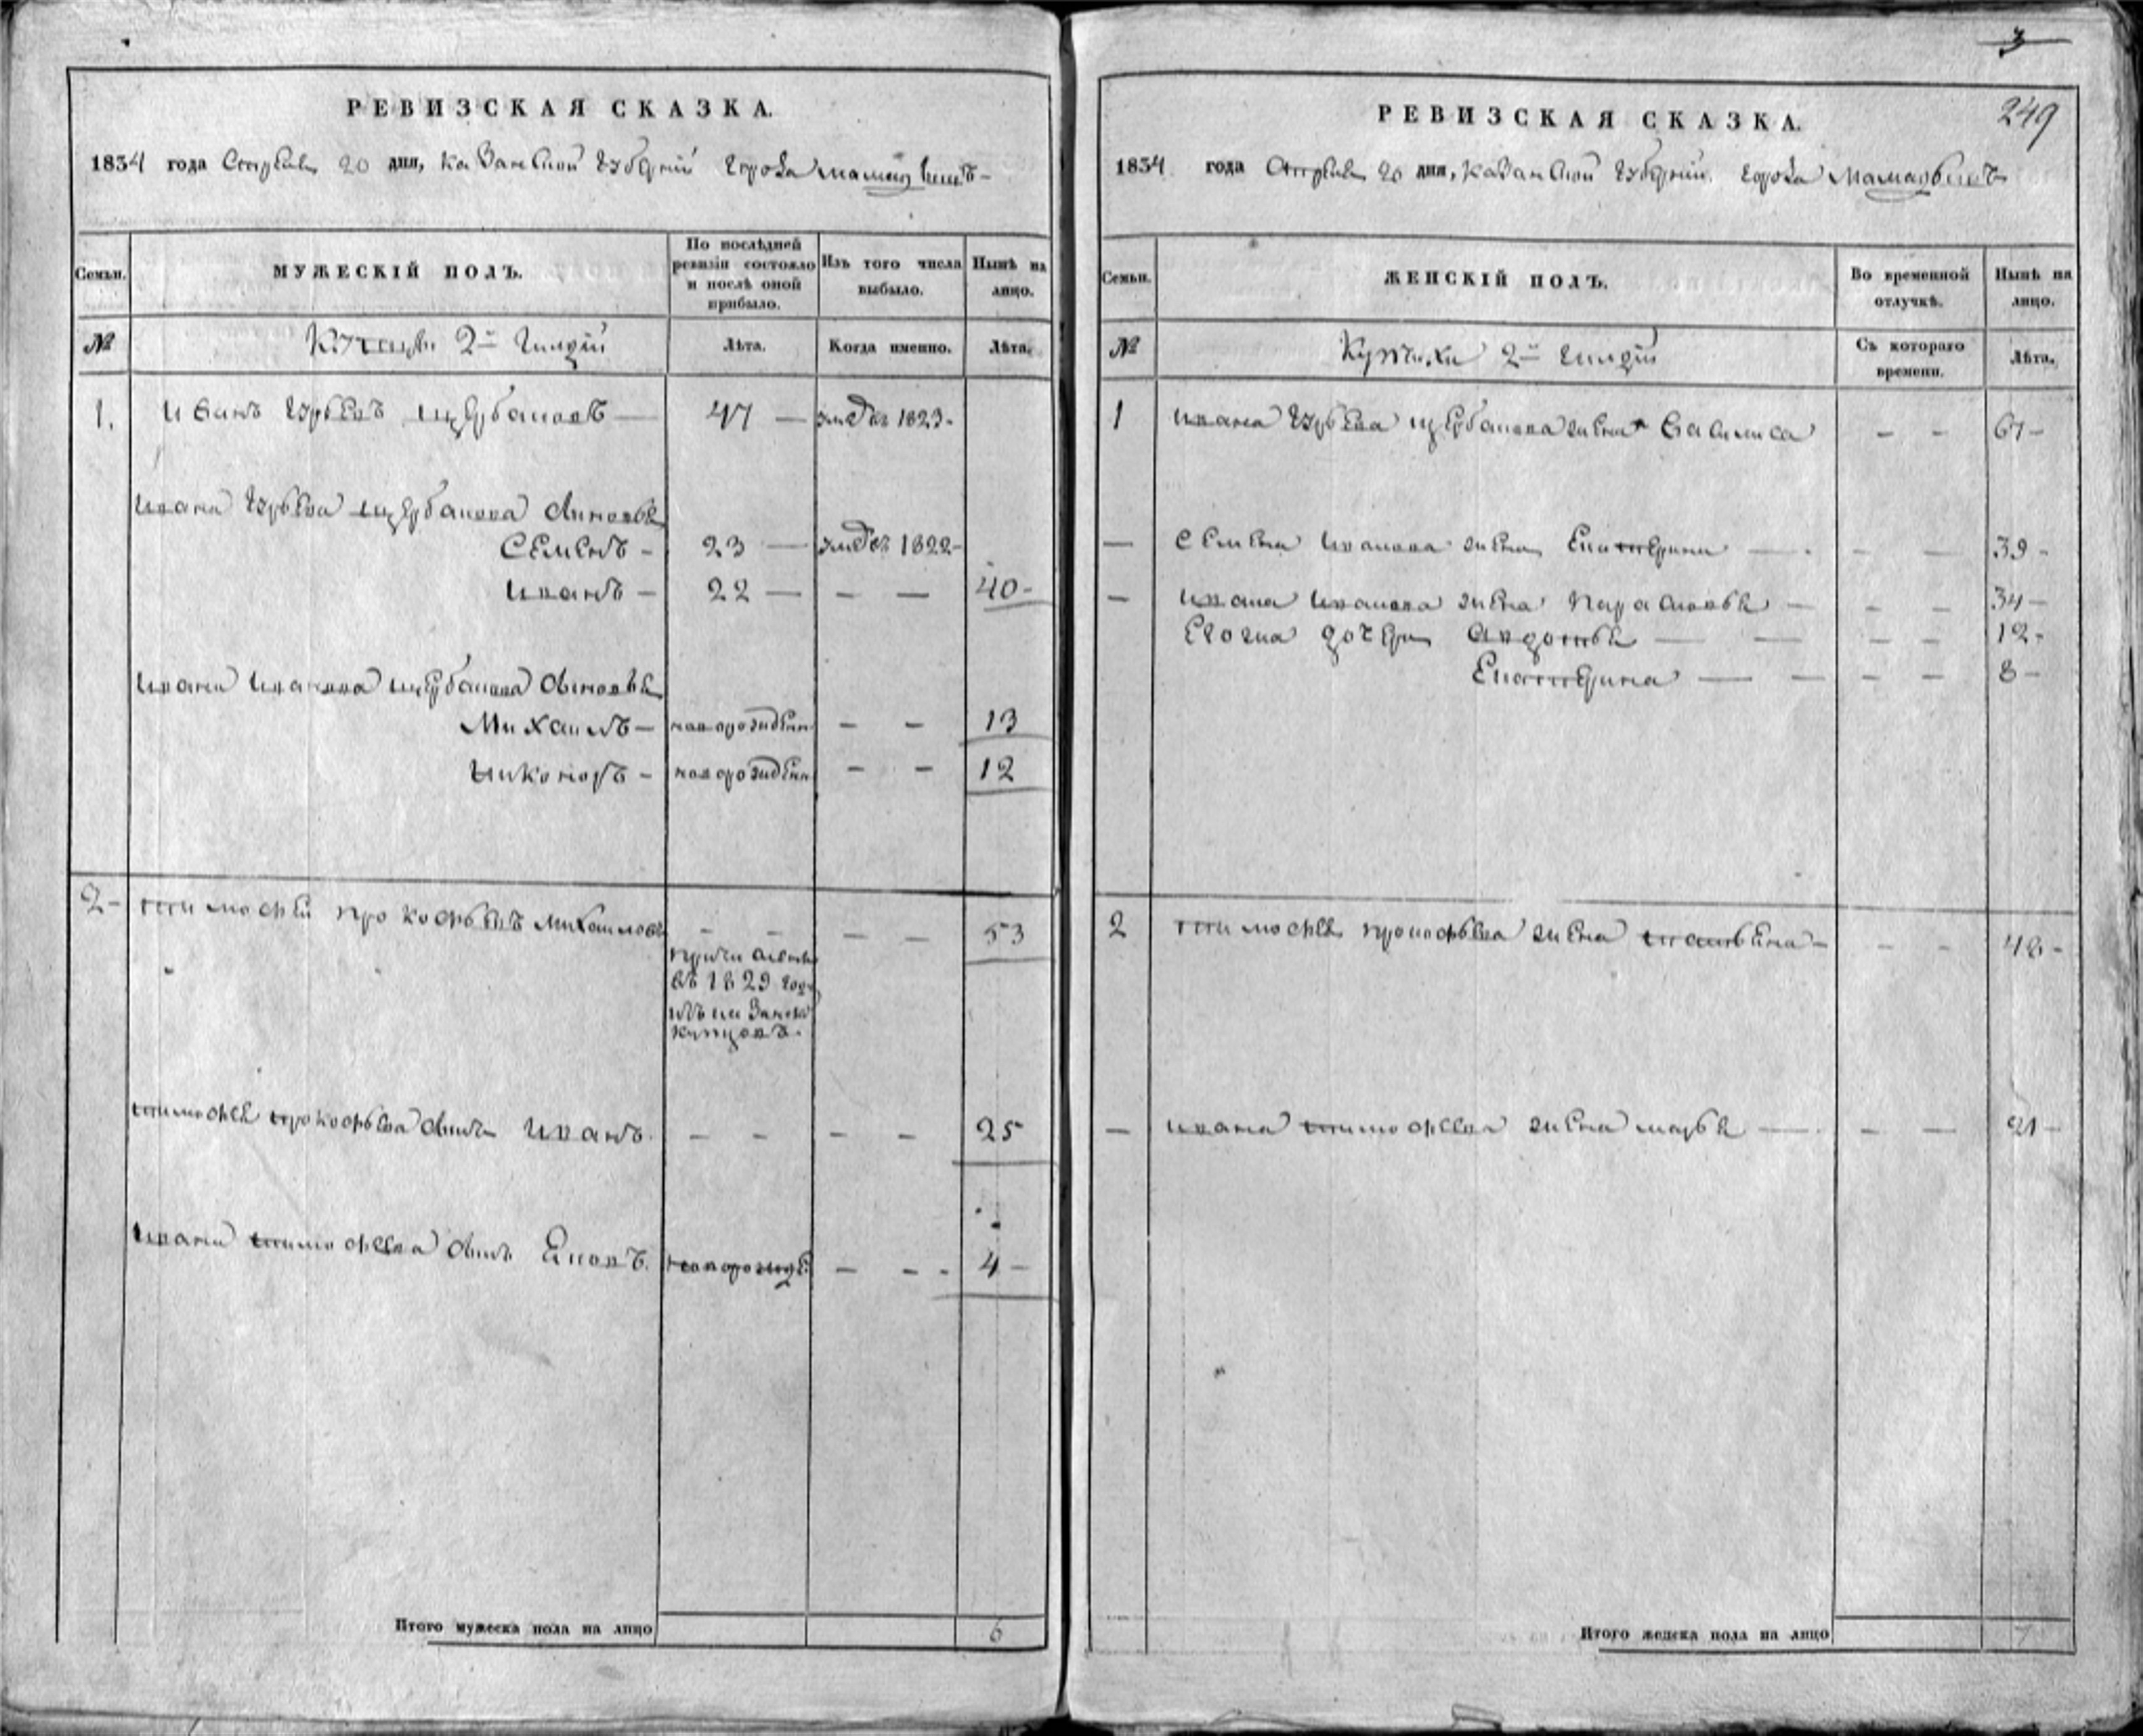 РЕВИЗСКАЯ СКАЗКА.
1834 года Апреля 20 дня, Казанской Губернии города Мамадышъ
Семьи.
МУЖЕСКІЙ ПОЛЪ.
По послѣдней ревизіи состояло и послѣ оной прибыло.
Изъ того числа выбыло.
Нынѣ на лицо.
№
Купцы 2й Гилдіи
Лѣта.
Когда именно.
Лѣта.
1. Иванъ Гурьевъ Щербаковъ — 47 — 1823
Ивана Гурьева Щербакова сыновья
Семенъ — 23 — 1822
Иванъ — 22 — — — 40
Ивана Иванова Щербакова сыновья
Михаилъ — новорожден — — 13
Никоноръ — новорожден — — 12
2 Тимофей Прокофьевъ Михайловъ — — — — 53
причислен
въ 1829 году
изъ казанск
купцовъ.
Тимофея Прокофьева сынъ Иванъ — — — — 25
Ивана Тимофеева сынъ Яковъ. новорожде — — 4
Итого мужеска пола на лицо 6
3
249
РЕВИЗСКАЯ СКАЗКА.
1834 года Апреля 20 дня, Казанской Губернии города Мамадышъ
Семьи.
ЖЕНСКІЙ ПОЛЪ.
Во временной отлучкѣ.
Нынѣ на лицо.
№
Купчихи 2й Гилдіи
Съ котораго времени.
Лѣта.
1 Ивана Гурьева Щербакова жена Василиса — — 61
— Семена Иванова жена Екатерина — — — 39
— Ивана Иванова жена Парасковья — — — 34
Егожа дочери Авдотья — — — — 12
Екатерина — — — — 8
2 Тимофея Прокофьева жена Татьяна — — — 48
— Ивана Тимофеева жена Марья — — — 21
Итого женска пола на лицо 7